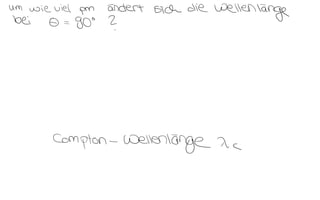 um wie viel pm ändert sich die Wellenlänge
bei θ = 90° ?
Compton-Wellenlänge λc